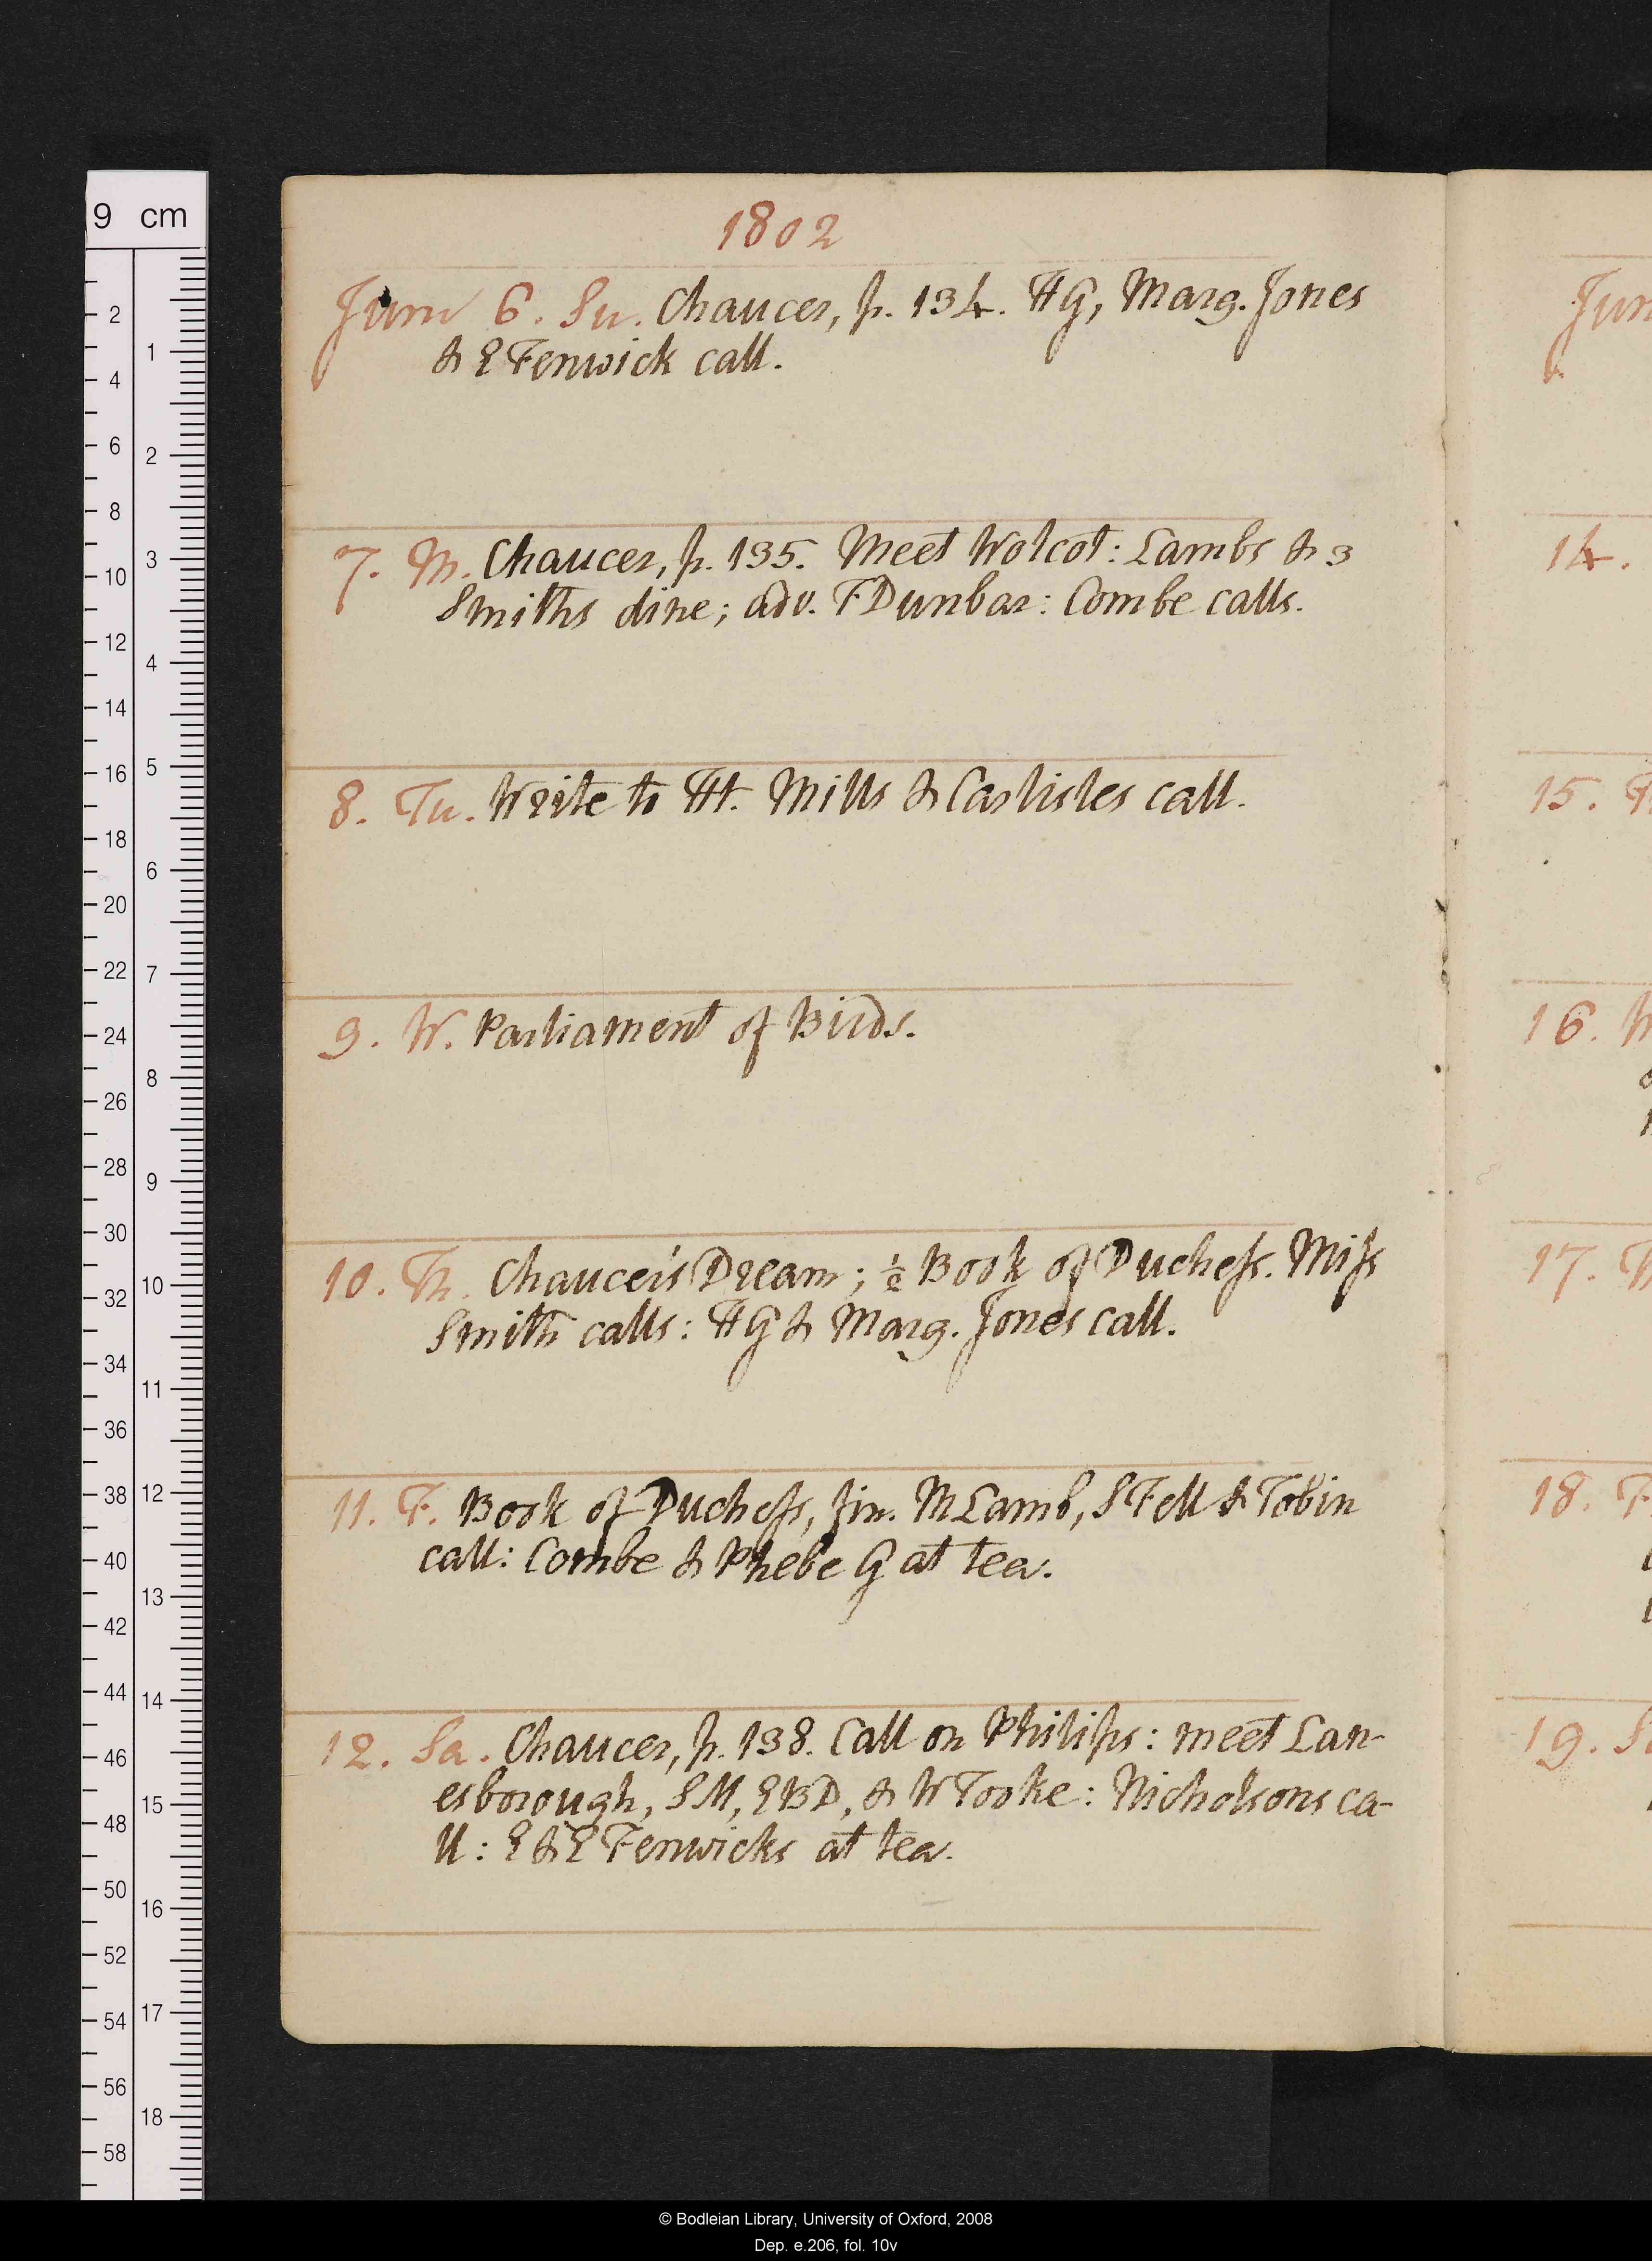 9 cm
1802
June 6. Su. Chaucer, p. 134. HG, Marg. Jones
& E Fenwick call.
7. M. Chaucer, p. 135. Meet Wolcot: Lambs & 3
Smiths dine; adv. F Dunbar: Combe calls.
8. Tu. Write to Ht. Mills & Carlisles call.
9. W. Parliament of Birds.
10. Th. Chaucer's Dream; ½ Book of Duchess. Miss
Smith calls: HG & Marg. Jones call.
11. F. Book of Duchess, fin. M Lamb, S Fell & Tobin
call: Combe & Phebe G at tea.
12. Sa. Chaucer, p. 138. Call on Philips: meet Lan-
esborough, SM, EBD, & W Tooke: Nicholsons ca-
ll: E & E Fenwicks at tea.
Jun
14.
15.
16.
17.
18. F
19. S
2
4
6
8
10
12
14
16
18
20
22
24
26
28
30
32
34
36
38
40
42
44
46
48
50
52
54
56
58
1
2
3
4
5
6
7
8
9
10
11
12
13
14
15
16
17
18
© Bodleian Library, University of Oxford, 2008
Dep. e.206, fol. 10v